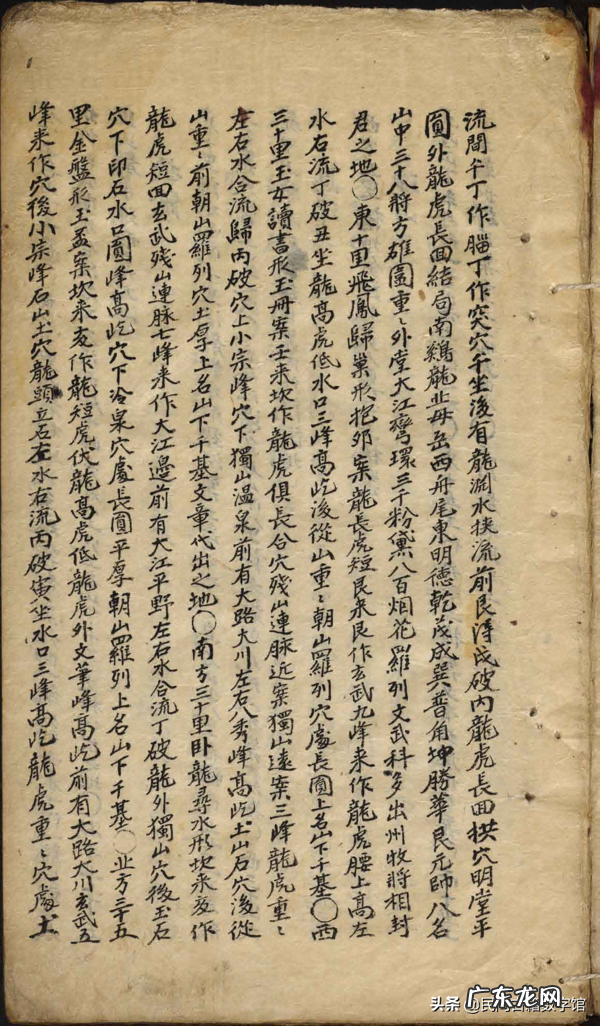 流間午丁作腦丁作突穴午坐後有龍淵水挾流前艮淂戌破內龍虎長回拱穴明堂平
圓外龍虎長回結局南鷄龍北母岳西舟尾東明德乾茂成巽普角坤勝華艮元帥十八名
山中三十八將方雄圖重〻外堂大江彎環三千粉黛八百烟花羅列文武科多出州牧將相封
君之地〇東十里飛鳳歸巢形抱卵案龍長虎短艮來艮作玄武九峰來作龍虎腰上高左
水右流丁破丑坐龍高虎低水口三峰高屹後從山重〻朝山羅列穴處長圓上名山下千基〇西
三十里玉女讀書形玉冊案壬來坎作龍虎俱長合穴殘山連脉近案獨山遠案三峰龍虎重〻
左右水合流歸丙破穴上小宗峰穴下獨山温泉前有大路大川左右八秀峰高屹土山石穴後從
山重〻前朝山羅列穴土厚上名山下千基文章代出之地〇南方三十里卧龍尋水形坎來亥作
龍虎短回玄武殘山連脉七峰來作大江邊前有大江平野左右水合流丁破龍外獨山穴後玉石
穴下印石水口圓峰高屹穴下冷泉穴處長圓平厚朝山羅列上名山下千基〇北方三十五
里金盤形玉盃案坎來亥作龍短虎伏龍高虎低龍虎外文筆峰高屹前有大路大川玄武五
峰來作穴後小宗峰石山土穴龍頭立石左水右流丙破寅坐水口三峰高屹龍虎重〻穴處土
头条 @民间古籍数字馆
广东龙网